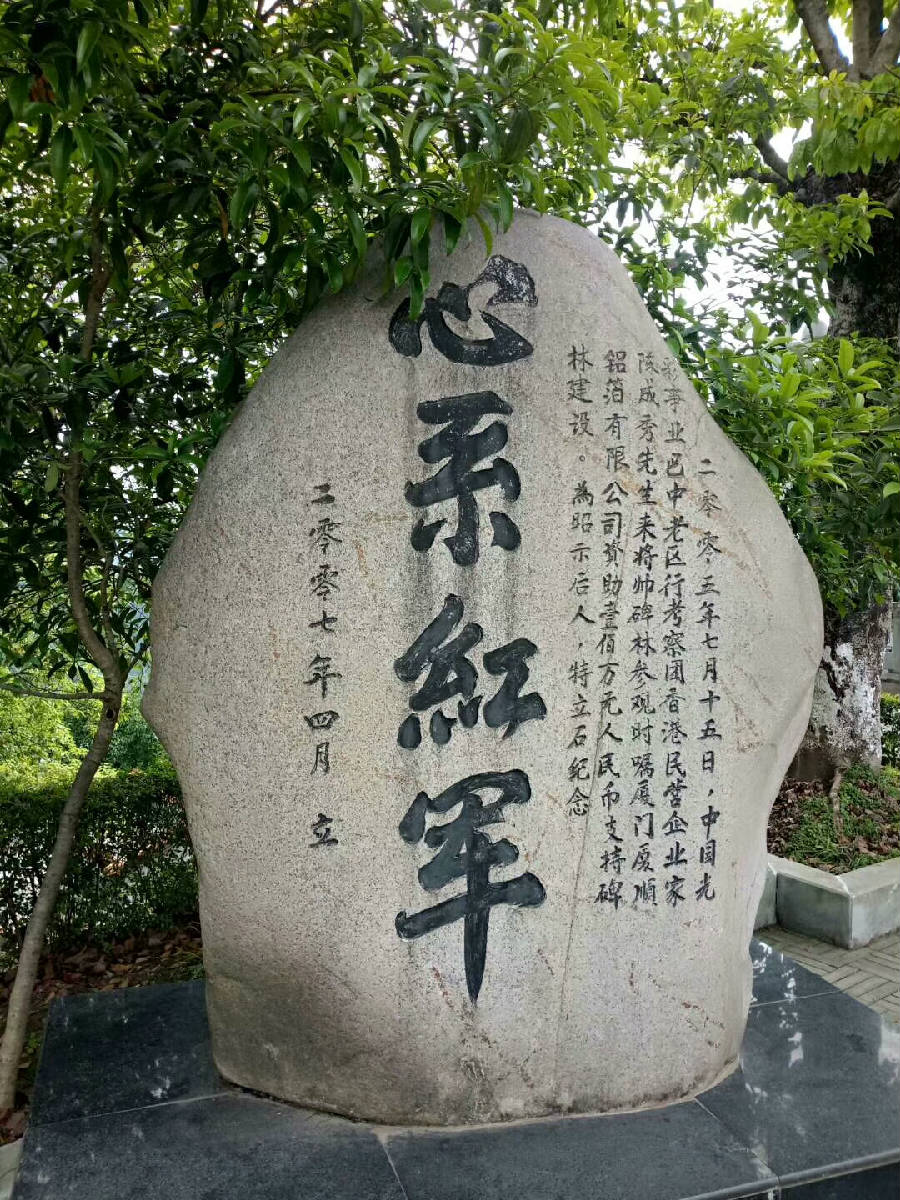 二零零五年七月十五日，中国光
彩事业巴中老区行考察团香港民营企业家
陈成秀先生来将帅碑林参观时嘱厦门厦顺
铝箔有限公司資助壹佰万元人民币支持碑
林建设。為昭示后人，特立石纪念
心系紅军
二零零七年四月 立